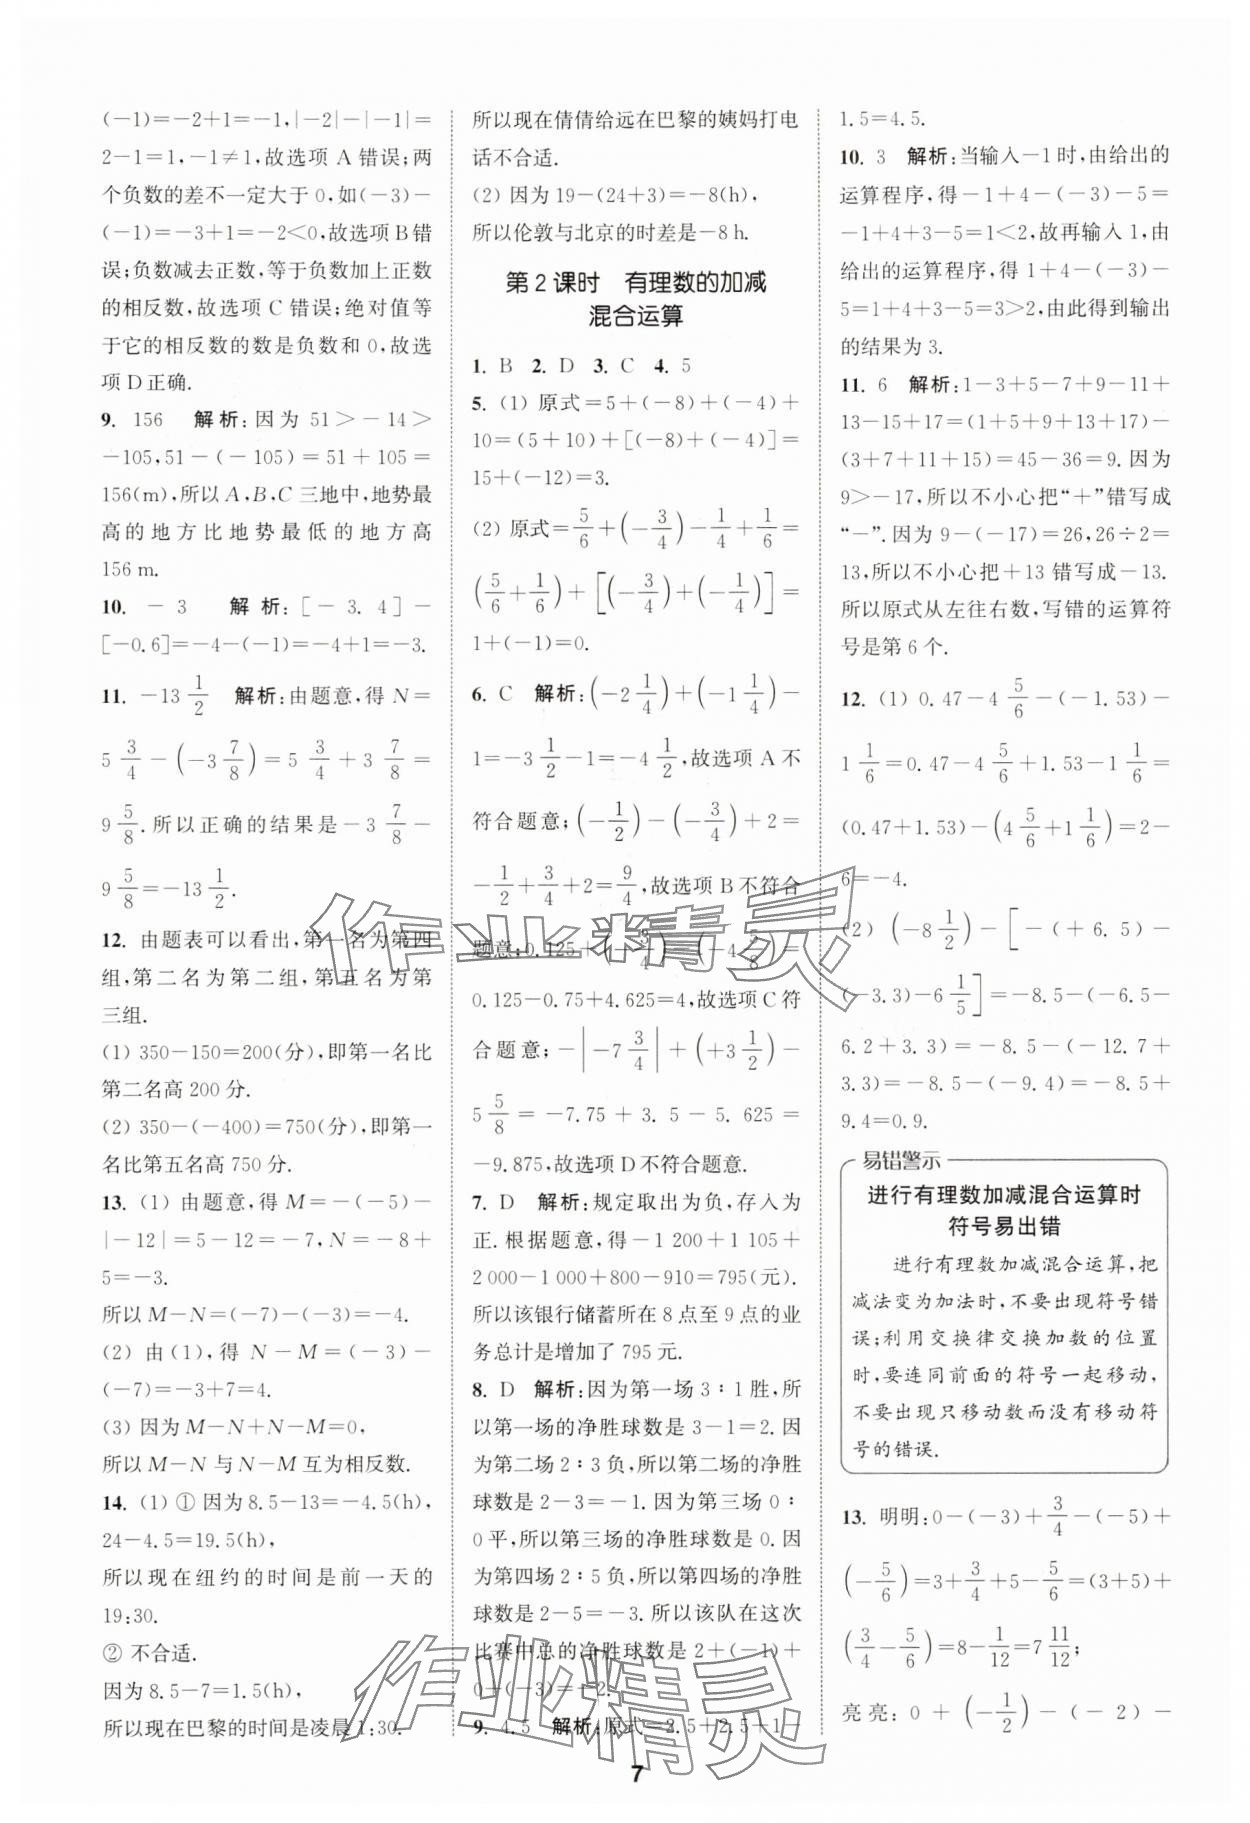 (-1)=-2+1=-1,|-2|-|-1|=
2-1=1,-1≠1,故选项 A 错误;两
个负数的差不一定大于 0,如(-3)-
(-1)=-3+1=-2<0,故选项 B 错
误;负数减去正数,等于负数加上正数
的相反数,故选项 C 错误;绝对值等
于它的相反数的数是负数和 0,故选
项 D 正确.
9. 156 解析:因为 51>-14>
-105,51-(-105)=51+105=
156(m),所以 A,B,C 三地中,地势最
高的地方比地势最低的地方高
156 m.
10. -3 解析:[-3.4]-
[-0.6]=-4-(-1)=-4+1=-3.
11. -13 1/2 解析:由题意,得 N=
5 3/4-(-3 7/8)=5 3/4+3 7/8=
9 5/8.所以正确的结果是-3 7/8-
9 5/8=-13 1/2.
12. 由题表可以看出,第一名为第四
组,第二名为第二组,第五名为第
三组.
(1) 350-150=200(分),即第一名比
第二名高 200 分.
(2) 350-(-400)=750(分),即第一
名比第五名高 750 分.
13. (1) 由题意,得 M=-(-5)-
|-12|=5-12=-7,N=-8+
5=-3.
所以 M-N=(-7)-(-3)=-4.
(2) 由(1),得 N-M=(-3)-
(-7)=-3+7=4.
(3) 因为 M-N+N-M=0,
所以 M-N 与 N-M 互为相反数.
14. (1) ① 因为 8.5-13=-4.5(h),
24-4.5=19.5(h),
所以现在纽约的时间是前一天的
19:30.
② 不合适.
因为 8.5-7=1.5(h),
所以现在巴黎的时间是凌晨 1:30.
所以现在倩倩给远在巴黎的姨妈打电
话不合适.
(2) 因为 19-(24+3)=-8(h),
所以伦敦与北京的时差是-8 h.
第 2 课时 有理数的加减
混合运算
1. B 2. D 3. C 4. 5
5. (1) 原式=5+(-8)+(-4)+
10=(5+10)+[(-8)+(-4)]=
15+(-12)=3.
(2) 原式=5/6+(-3/4)-1/4+1/6=
(5/6+1/6)+[(-3/4)+(-1/4)]=
1+(-1)=0.
6. C 解析:(-2 1/4)+(-1 1/4)-
1=-3 1/2-1=-4 1/2,故选项 A 不
符合题意;(-1/2)-(-3/4)+2=
-1/2+3/4+2=9/4,故选项 B 不符合
题意;0.125+(-3/4)-(-4 5/8)=
0.125-0.75+4.625=4,故选项 C 符
合题意;-|-7 3/4|+(+3 1/2)-
5 5/8=-7.75+3.5-5.625=
-9.875,故选项 D 不符合题意.
7. D 解析:规定取出为负,存入为
正.根据题意,得-1 200+1 105+
2 000-1 000+800-910=795(元).
所以该银行储蓄所在 8 点至 9 点的业
务总计是增加了 795 元.
8. D 解析:因为第一场 3∶1 胜,所
以第一场的净胜球数是 3-1=2.因
为第二场 2∶3 负,所以第二场的净胜
球数是 2-3=-1.因为第三场 0∶
0 平,所以第三场的净胜球数是 0.因
为第四场 2∶5 负,所以第四场的净胜
球数是 2-5=-3.所以该队在这次
比赛中总的净胜球数是 2+(-1)+
0+(-3)=-2.
9. 4.5 解析:原式=2.5+2.5+1-
1.5=4.5.
10. 3 解析:当输入-1 时,由给出的
运算程序,得-1+4-(-3)-5=
-1+4+3-5=1<2,故再输入 1,由
给出的运算程序,得 1+4-(-3)-
5=1+4+3-5=3>2,由此得到输出
的结果为 3.
11. 6 解析:1-3+5-7+9-11+
13-15+17=(1+5+9+13+17)-
(3+7+11+15)=45-36=9.因为
9>-17,所以不小心把“+”错写成
“-”.因为 9-(-17)=26,26÷2=
13,所以不小心把+13 错写成-13.
所以原式从左往右数,写错的运算符
号是第 6 个.
12. (1) 0.47-4 5/6-(-1.53)-
1 1/6=0.47-4 5/6+1.53-1 1/6=
(0.47+1.53)-(4 5/6+1 1/6)=2-
6=-4.
(2) (-8 1/2)-[-(+6.5)-
(-3.3)-6 1/5]=-8.5-(-6.5-
6.2+3.3)=-8.5-(-12.7+
3.3)=-8.5-(-9.4)=-8.5+
9.4=0.9.
易错警示
进行有理数加减混合运算时
符号易出错
进行有理数加减混合运算,把
减法变为加法时,不要出现符号错
误;利用交换律交换加数的位置
时,要连同前面的符号一起移动,
不要出现只移动数而没有移动符
号的错误.
13. 明明:0-(-3)+3/4-(-5)+
(-5/6)=3+3/4+5-5/6=(3+5)+
(3/4-5/6)=8-1/12=7 11/12;
亮亮:0+(-1/2)-(-2)-
7
作业精灵
作业精灵